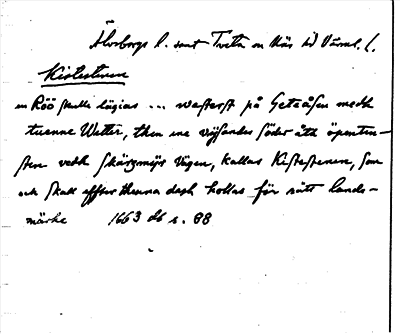 Älvsborgs l. samt Tveta o Näs hd Värml. l.
Kistestenen
en Röö skulle läggias ... wästerst på Getåsen medh
tuenne Wetter, then ene vijsandes söder åth öpensten-
sten vedh skärzmyr vägen, kallas Kistestenen, som
och skall effter thenna dagh hollas för rätt lands-
märke 1663 db s. 88